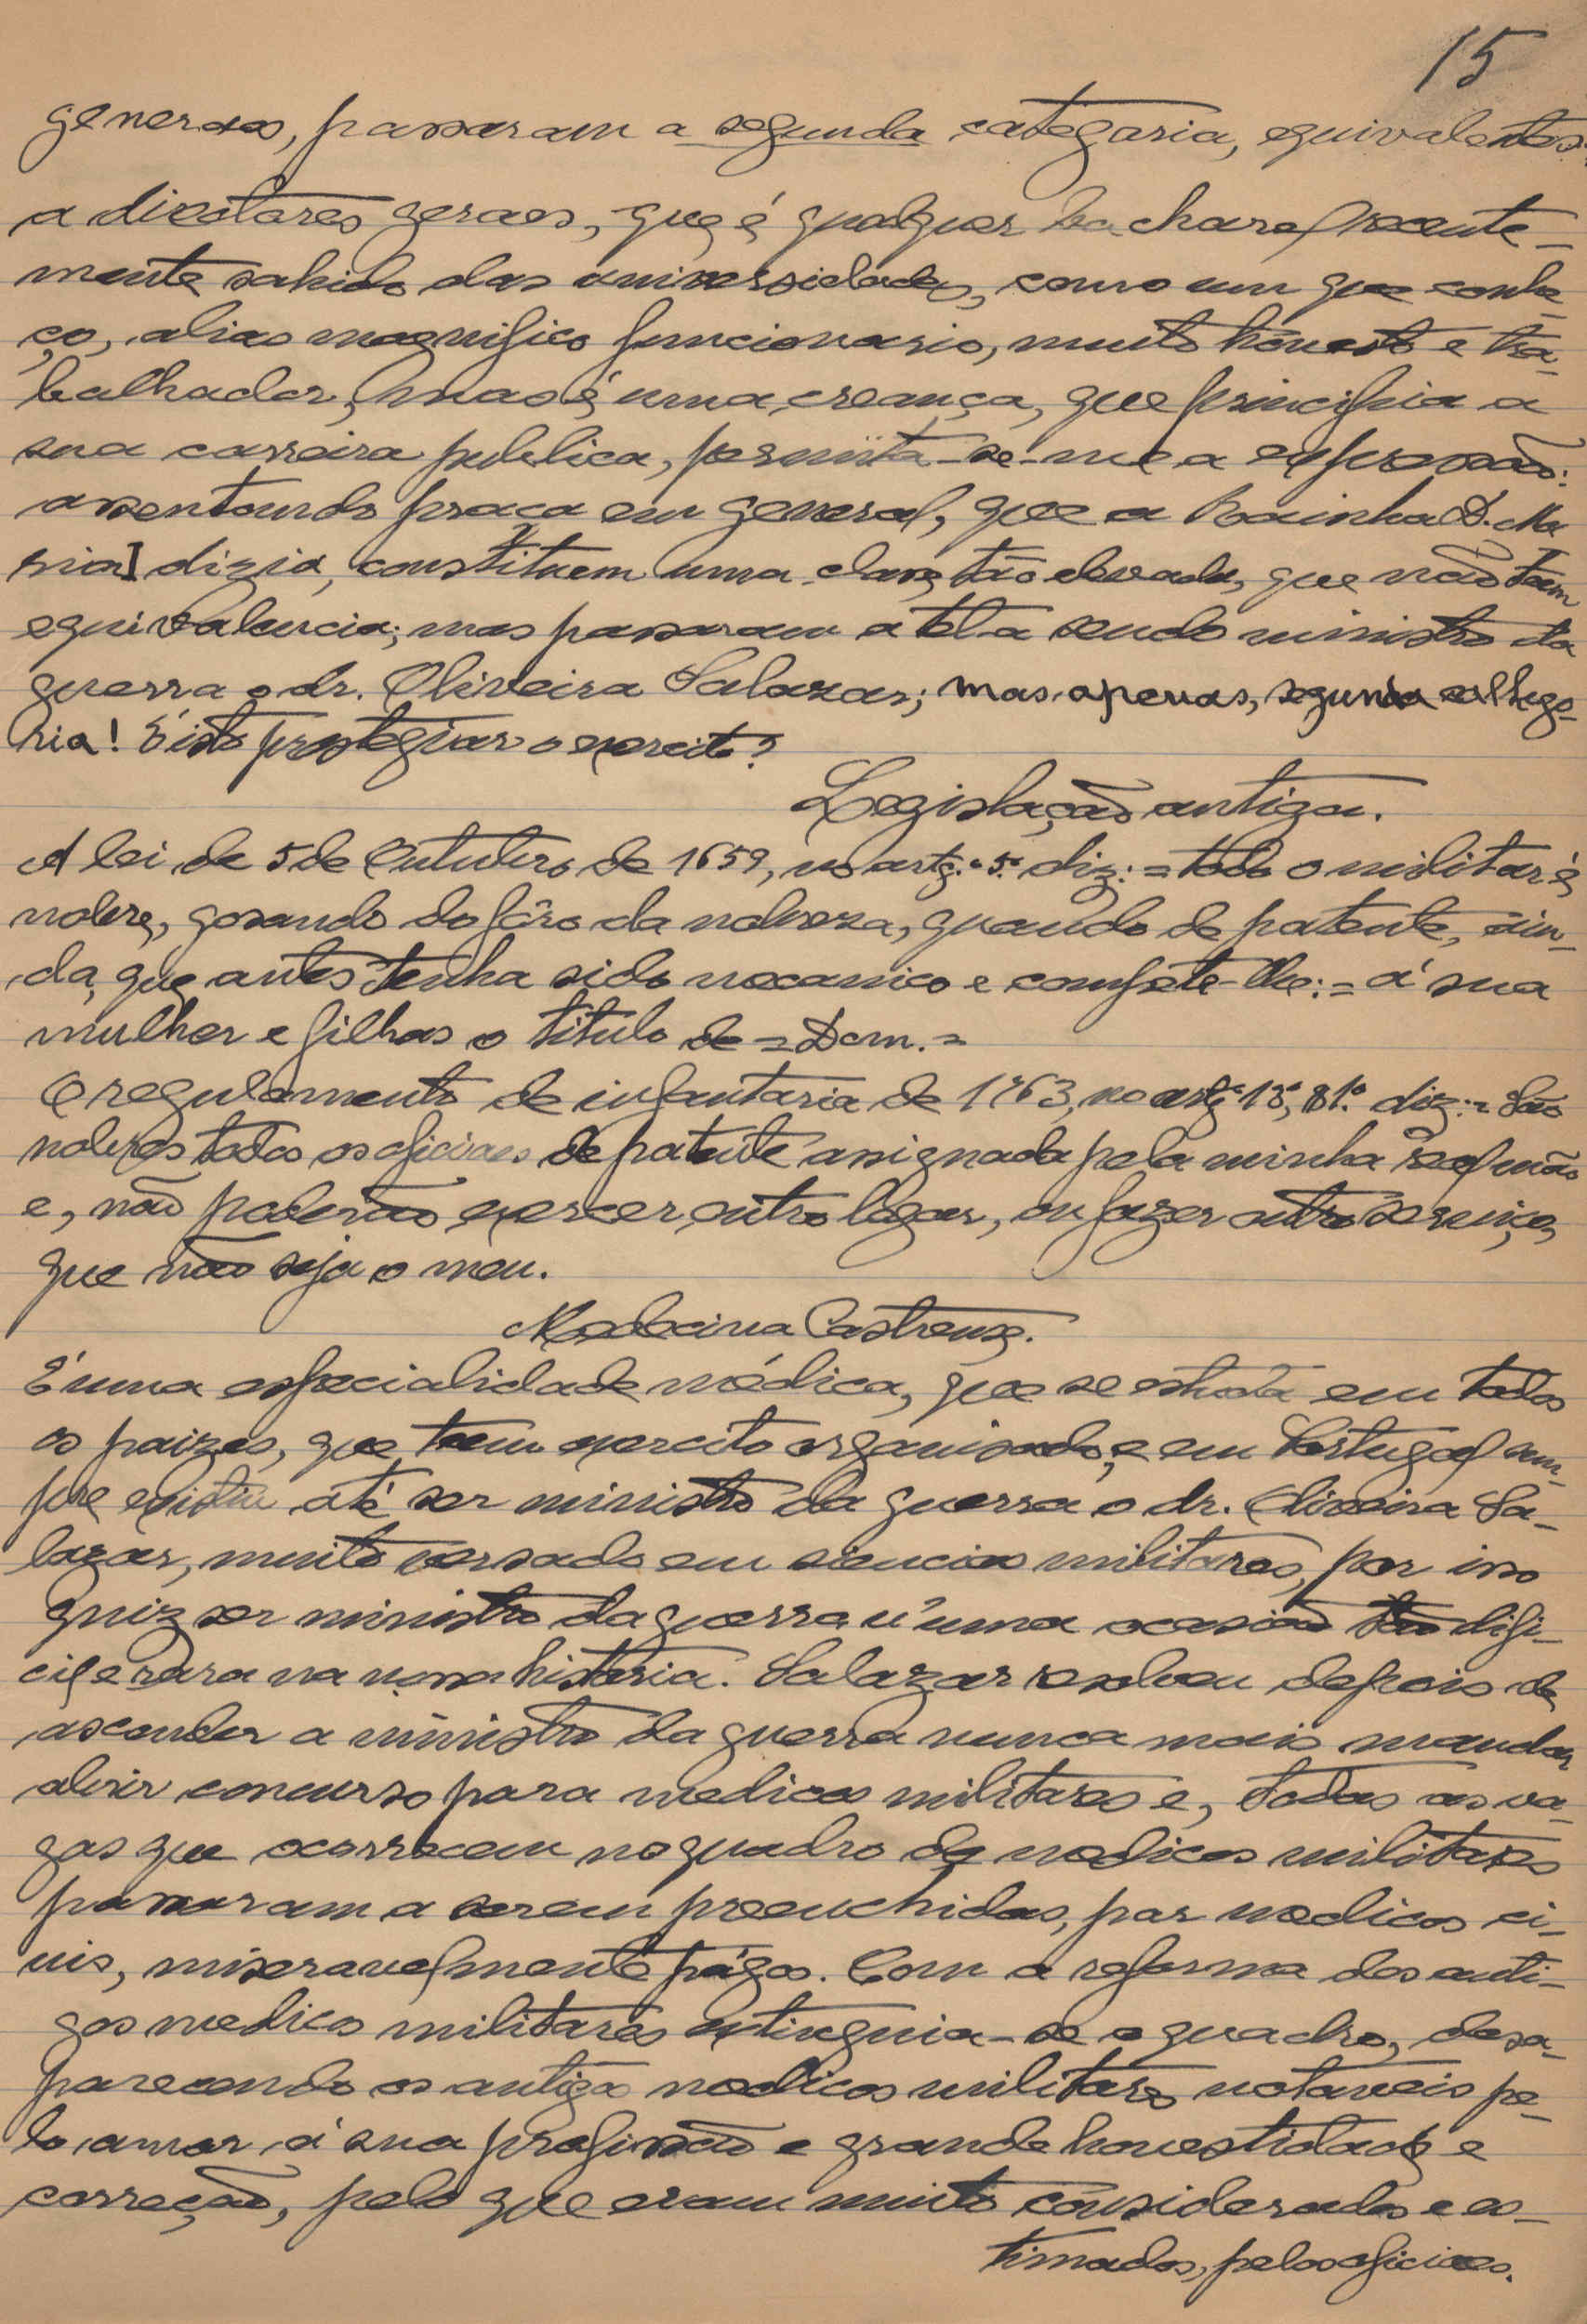 15
generaes, passaram a segunda categoria, equivalentes
a directores geraes, que é qualquer bacharel recente-
mente sahido das universidades, como um que conhe-
ço, alias magnifico funcionario, muito honesto e tra-
balhador, mas é uma creança, que principia a
sua carreira publica, permita-se-me a expressão:
assentando praça em general, que a Rainha D. Ma
ria I dizia, constituem uma classe tão elevada, que não teem
equivalencia; mas passaram a tel-a sendo ministro da
guerra o dr. Oliveira Salazar; mas, apenas, segunda cathego-
ria! É isto prestegiar o exercito?
Legislação antiga.
A lei de 5 de Outubro de 1659, no artg.º 5.º diz: = todo o militar é
nobre, gosando do fôro da nobresa, quando de patente, ain-
da, que antes tenha sido mecanico e compete-lhe: = á sua
mulher e filhas o titulo de = Dom. =
O regulamento de infantaria de 1763, no artgº 13º, § 1º. diz: = São
nobres todos os oficiaes de patente assignada pela minha real mão
e, não poderão exercer outro logar, ou fazer outro serviço,
que não seja o meu.
Medecina Castrense.
É uma especialidade médica, que se estuda em todos
os paizes, que teem exercito organisado, e em Portugal sem-
pre existiu até ser ministro da guerra o dr. Oliveira Sa-
lazar, muito versado em siencias militares, por isso
quiz ser ministro da guerra n'uma ocasião tão difi-
cil e rara na nossa historia. Salazar resolveu depois de
ascender a ministro da guerra nunca mais mandar
abrir concurso para medicos militares e, todas as va-
gas que ocorrecem no quadro de medicos militares
passaram a serem preenchidas, por medicos ci-
vis, miseravelmente págos. Com a reforma dos anti-
gos medicos militares extinguia-se o quadro, desa-
parecendo os antigos medicos militares notaveis pe-
lo amor á sua profissão e grande honestidade e
correção, pelo que eram muito considerados e es-
timados, pelos oficiaes.